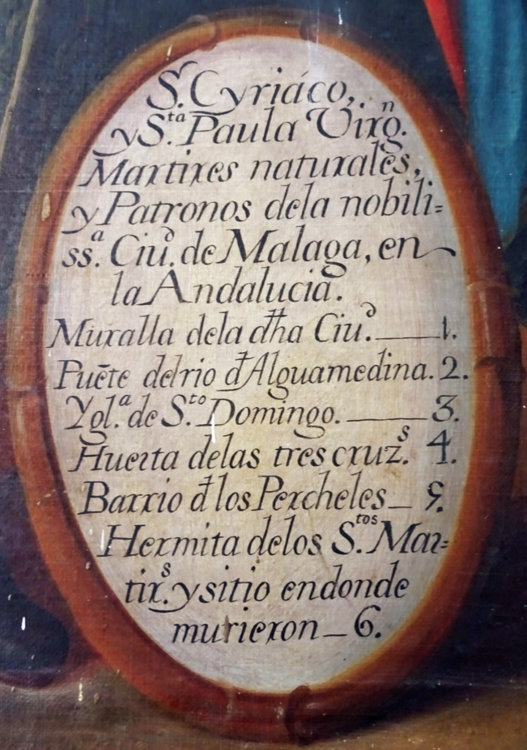 S.r Cyriáco,
y S.ta Paula Virg.n
Martires naturales,
y Patronos dela nobili=
ss.a Ciu.d de Malaga, en
la Andalucia.
Muralla dela dha Ciu.d 1.
Puēte del rio đ Alguamedina. 2.
Ygl.a de S.to Domingo. 3.
Huerta delas tres cruz.s 4.
Barrio đ los Percheles 5.
Hermita delos S.tos Mar=
tir.s y sitio endonde
murieron 6.